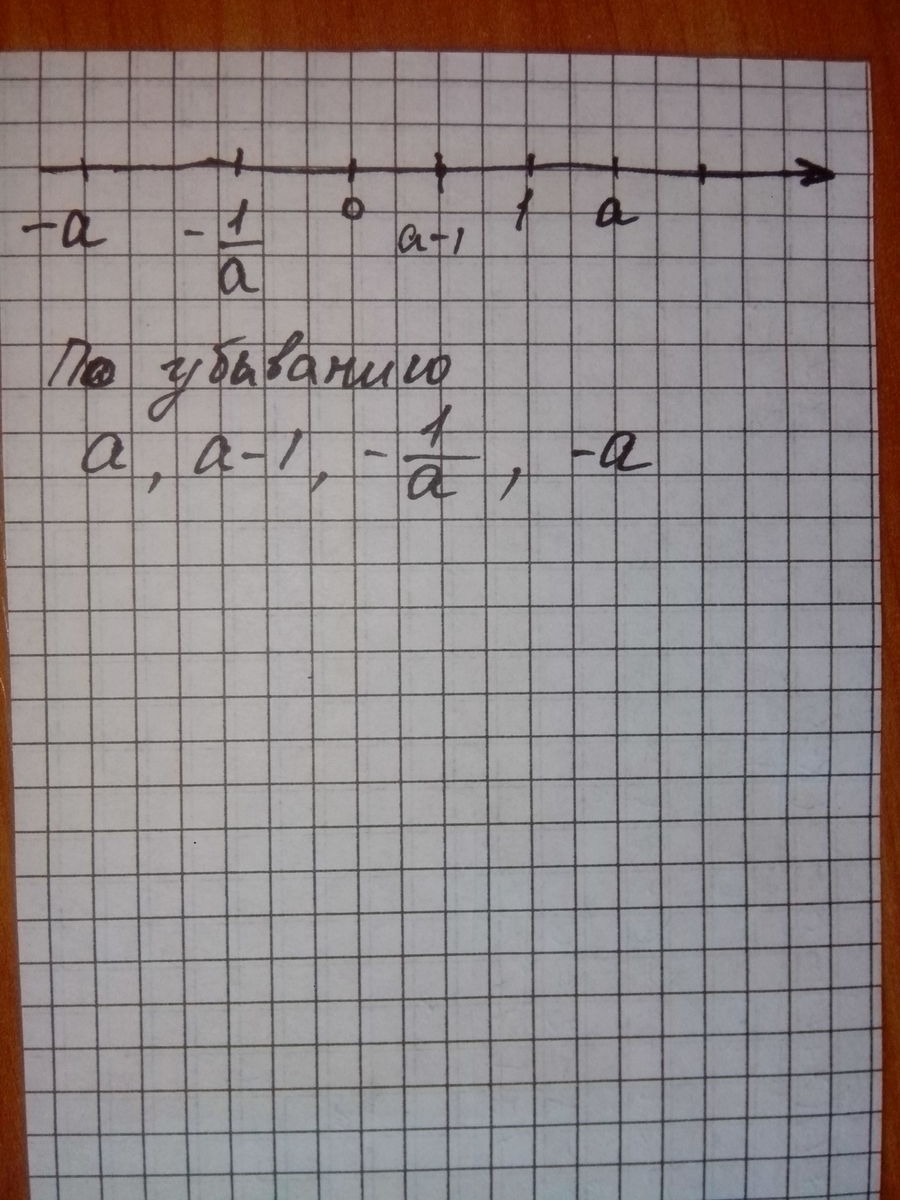 -a -1/a 0 a-1 1 a
По убыванию
a, a-1, -1/a, -a